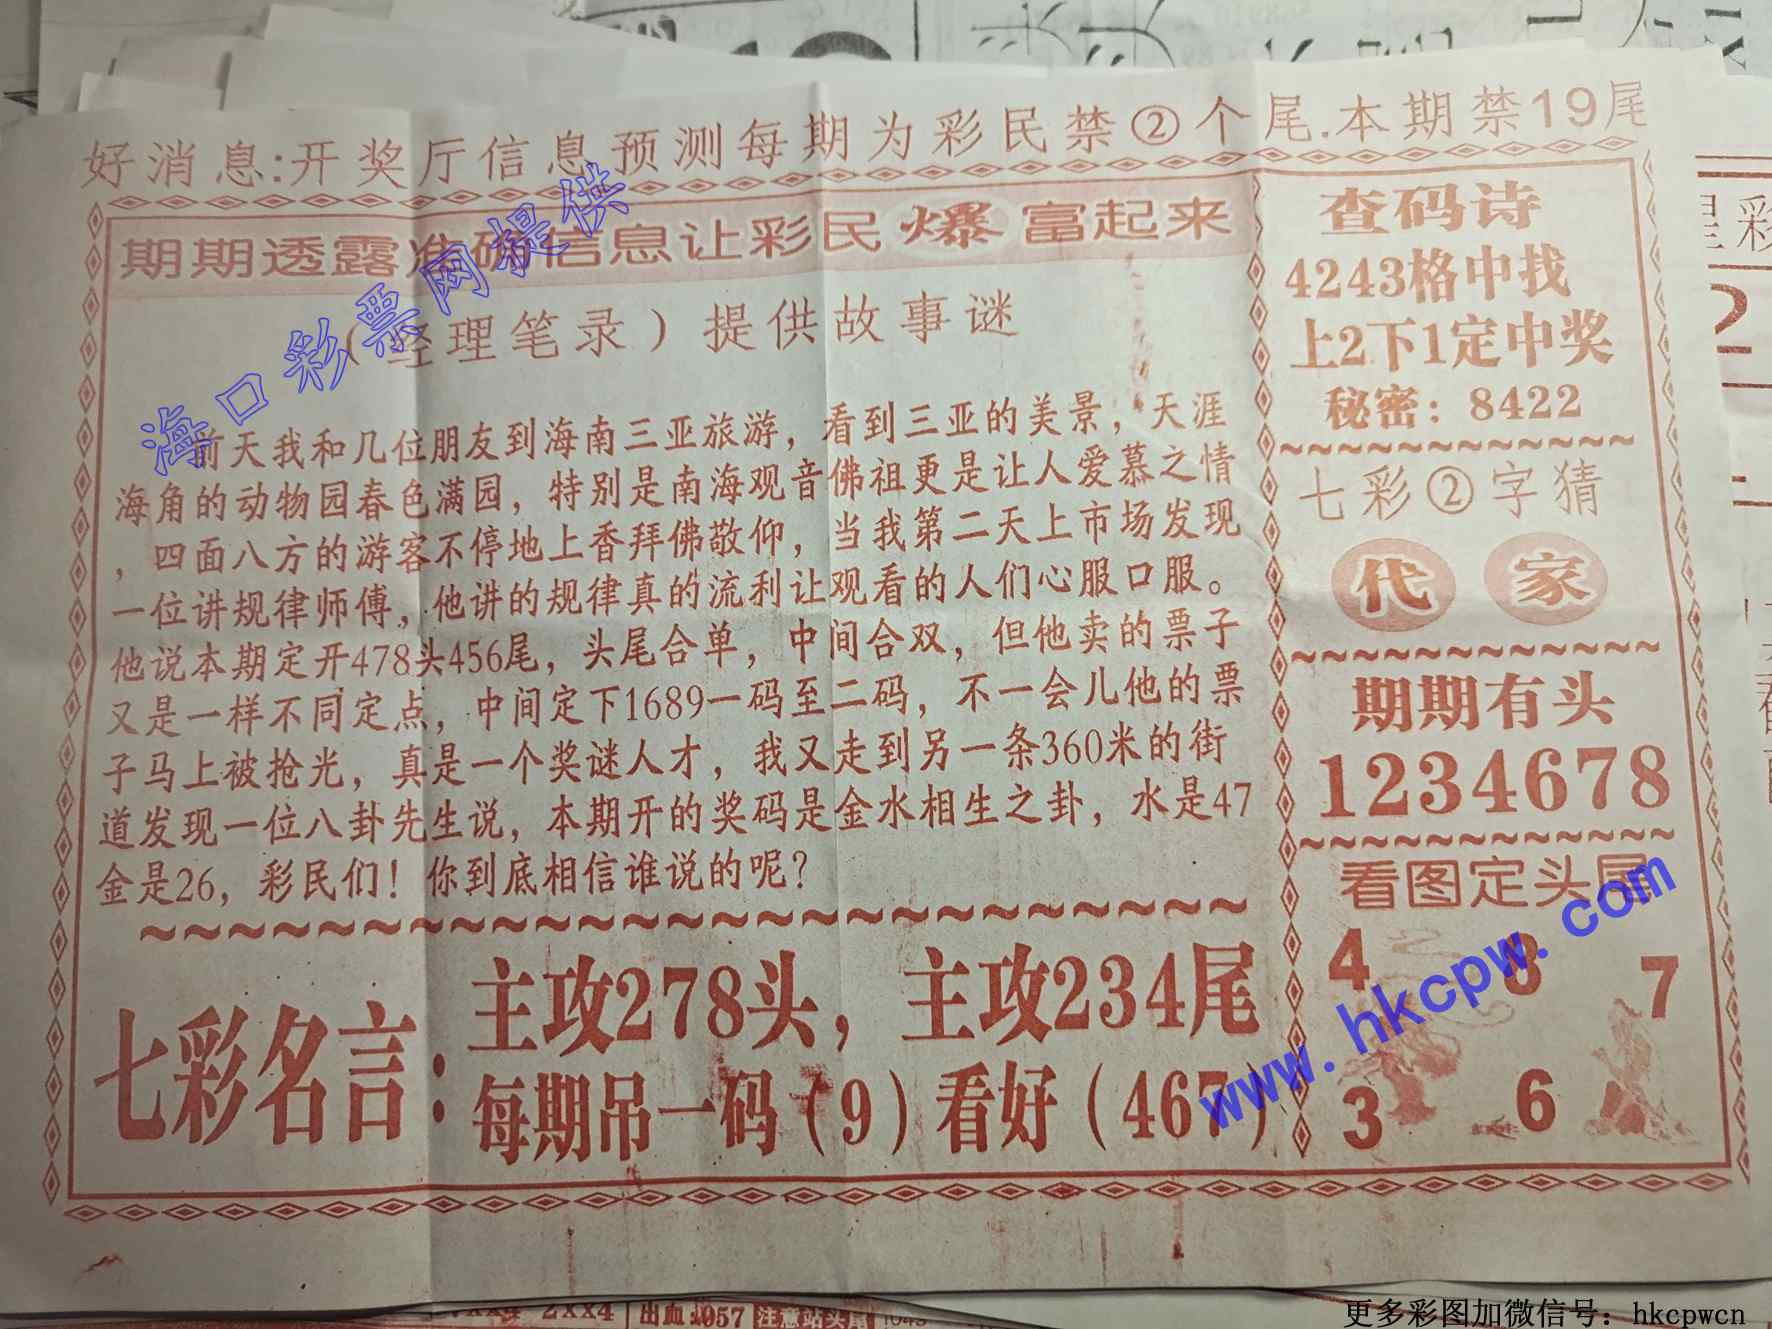 好消息:开奖厅信息预测每期为彩民禁②个尾.本期禁19尾
期期透露准确信息让彩民爆富起来
（经理笔录）提供故事谜
前天我和几位朋友到海南三亚旅游，看到三亚的美景，天涯
海角的动物园春色满园，特别是南海观音佛祖更是让人爱慕之情
，四面八方的游客不停地上香拜佛敬仰，当我第二天上市场发现
一位讲规律师傅，他讲的规律真的流利让观看的人们心服口服。
他说本期定开478头456尾，头尾合单，中间合双，但他卖的票子
又是一样不同定点，中间定下1689一码至二码，不一会儿他的票
子马上被抢光，真是一个奖谜人才，我又走到另一条360米的街
道发现一位八卦先生说，本期开的奖码是金水相生之卦，水是47
金是26，彩民们！你到底相信谁说的呢？
七彩名言：
主攻278头，主攻234尾
每期吊一码（9）看好（467）
查码诗
4243格中找
上2下1定中奖
秘密：8422
七彩②字猜
代 家
期期有头
1234678
看图定头尾
4 8 7
3 6
海口彩票网提供
www.hkcpw.com
2xx4 出血1057 注意站头尾
更多彩图加微信号：hkcpwcn